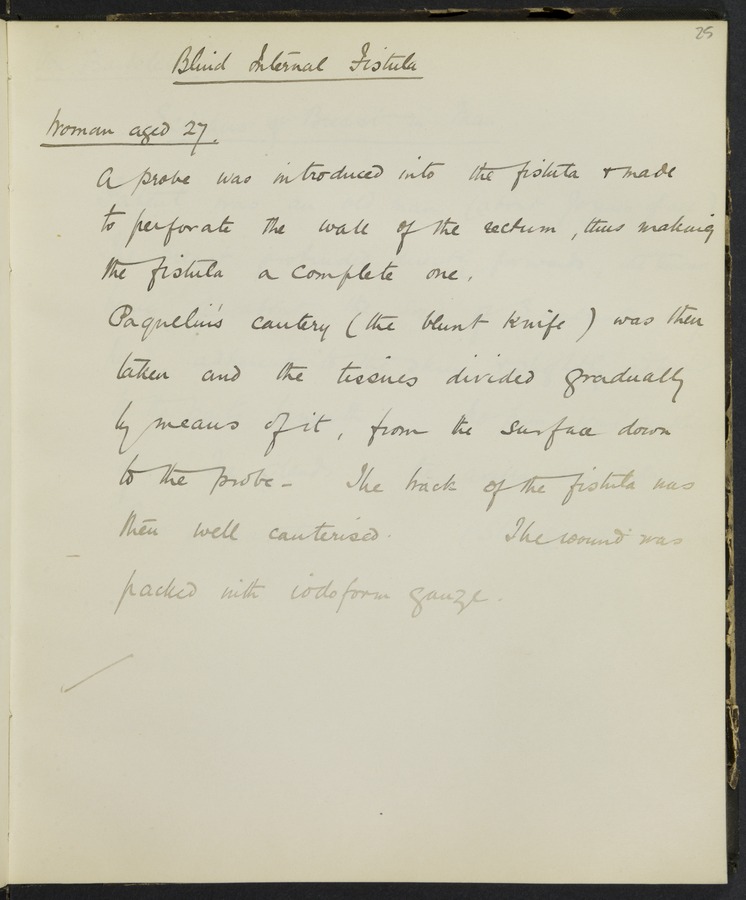 25
Blind Internal Fistula
Woman aged 27.
A probe was introduced into the fistula & made
to perforate the wall of the rectum, thus making
the fistula a complete one.
Paquelin's cautery (the blunt knife) was then
taken and the tissues divided gradually
by means of it, from the surface down
to the probe - The track of the fistula was
then well cauterised. The wound was
packed with iodoform gauze.